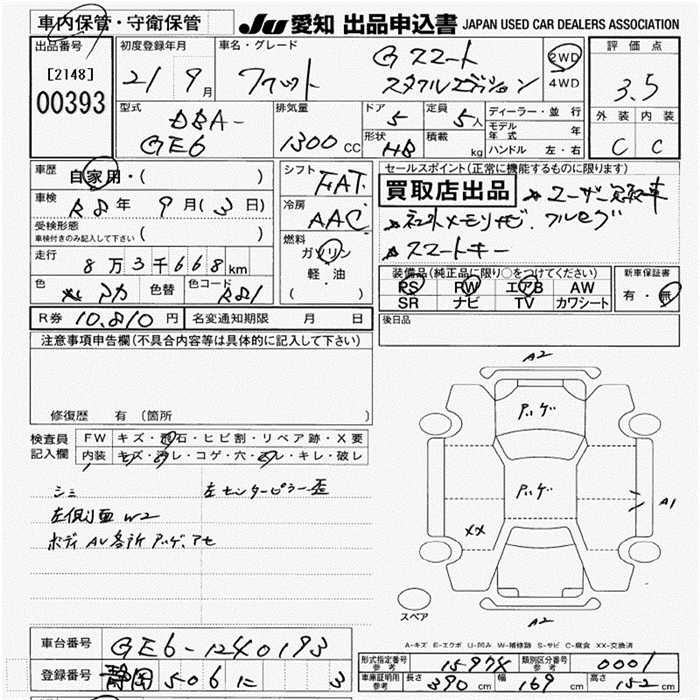 車内保管・守衛保管
JU 愛知 出品申込書 JAPAN USED CAR DEALERS ASSOCIATION
出品番号
[2148]
00393
初度登録年月
21 9月
車名・グレード
フィット
G スマート
スタイルエディション
2WD
4WD
評価点
3.5
外装 内装
C C
型式
DBA-
GE6
排気量
1300 CC
ドア 5
定員 5人
形状 HB
積載 kg
ディーラー・並行
モデル年式 年
ハンドル 左・右
車歴
自家用・( )
車検
R8年 9月(3日)
受検形態
車検付きのみ記入して下さい ( )
走行
8万3千668km
色 アカ 色替 色コード R81
シフト
FAT
冷房
AAC
燃料
ガソリン
軽・油
( )
セールスポイント(正常に機能するものに限ります)
買取店出品 ユーザー買取車
メモリナビ.フルセグ
スマートキー
装備品(純正品に限り○をつけてください)
PS PW エアB AW
SR ナビ TV カワシート
新車保証書
有・無
後日品
R券 10,810円 名変通知期限 月 日
注意事項申告欄(不具合内容等は具体的に記入して下さい)
修復歴 有(箇所
検査員
記入欄
FW キズ・飛石・ヒビ割・リペア跡・X要
内装 キズ・汚レ・コゲ・穴・スレ・キレ・破レ
シミ 左センターピラー歪
左側面 W2
ボディ AU各所 アハゲ、アセ
A2
アハゲ
アハゲ
A1
XX
スペア
A2
A-キズ E-エクボ U-凹み W-補修跡 S-サビ C-腐食 XX-交換済
車台番号 GE6-1240193
登録番号 静岡 506 に 3
形式指定番号 参考 15974 類別区分番号 参考 0001
車庫証明用 参考 長さ 390cm 幅 169cm 高さ 152cm